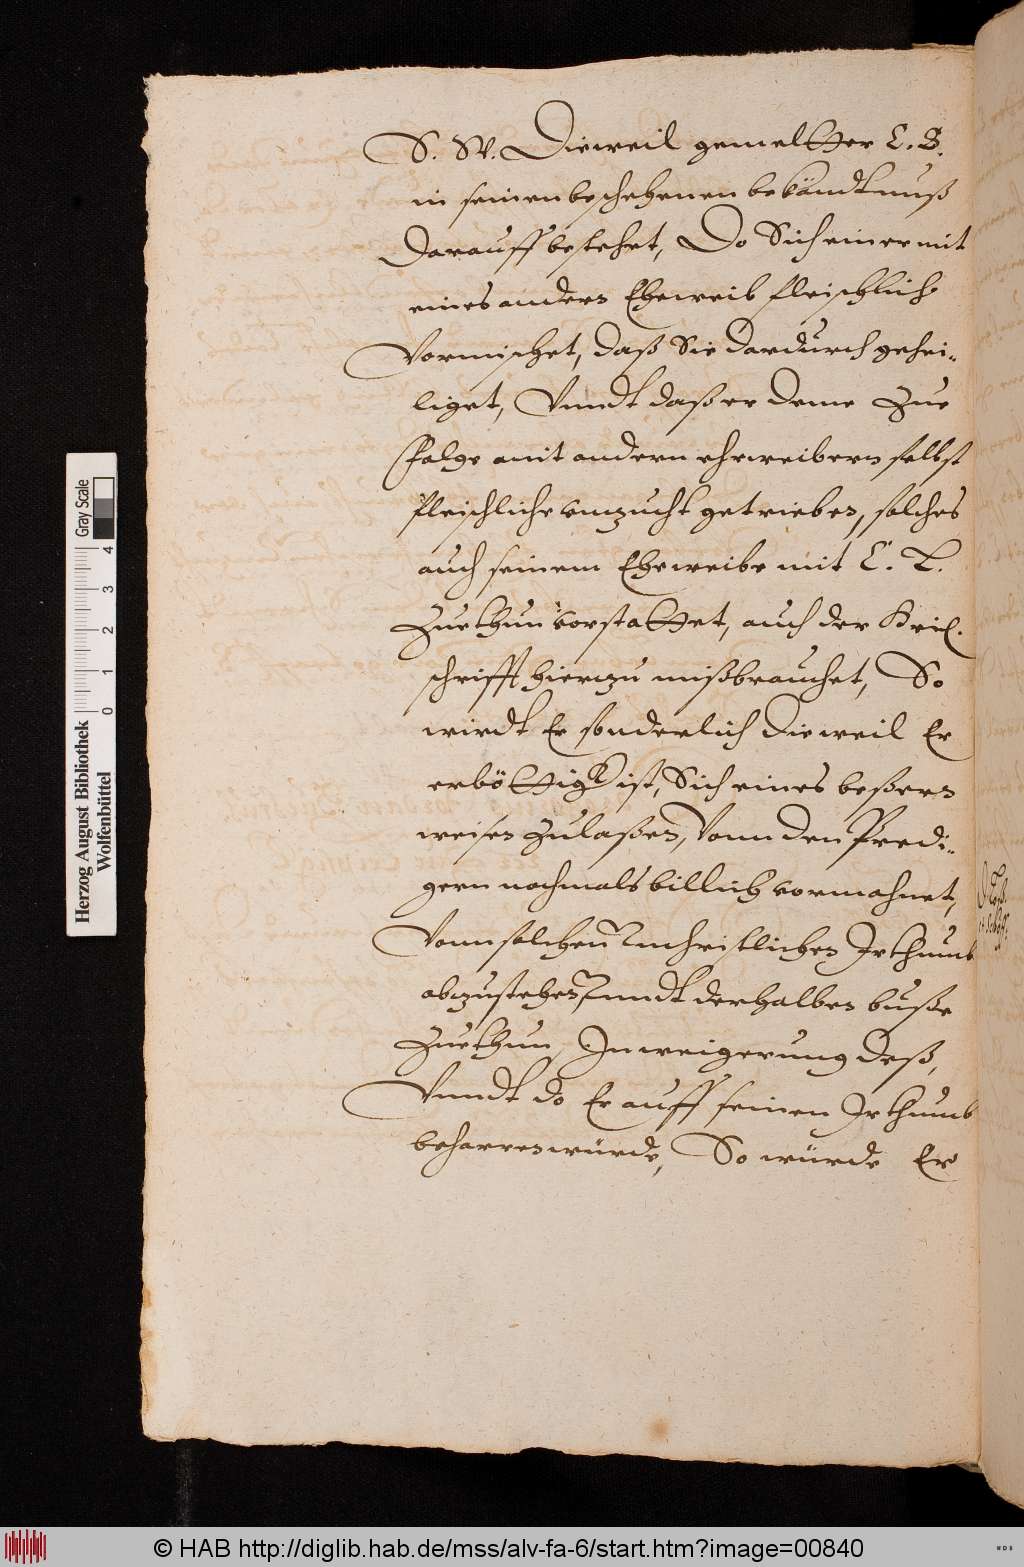 S. W. Dieweil gemeltter C. B.
in seinen beschehenen bekändtnuß
darauff bestehet, Do Sich einer mit
eines andern Eheweib fleischlich
Vormischet, daß Sie dardurch gehei-
liget, Vnndt daß er deme Zue
folge mit andern eheweibern selbst
fleischliche vnzucht getrieben, solches
auch seinem Eheweibe mit C. L.
Zuethun vorstattet, auch der Heil.
schrifft hierzu mißbrauchet, So
wirdt Er sonderlich dieweil Er
erböttig ist, Sich eines beßern
weisen Zulaßen, Vonn den Predi-
gern nochmals billich vormahnet,
Vonn solchen Vnchristlichen Irthumb
abzustehen, Vnndt derhalben buße
Zuethun, In weigerung deß,
Vnndt do Er auff seinen Irthumb
beharren würde, So würde Er
Herzog August Bibliothek
Wolfenbüttel
0 1 2 3 4
Gray Scale
© HAB http://diglib.hab.de/mss/alv-fa-6/start.htm?image=00840